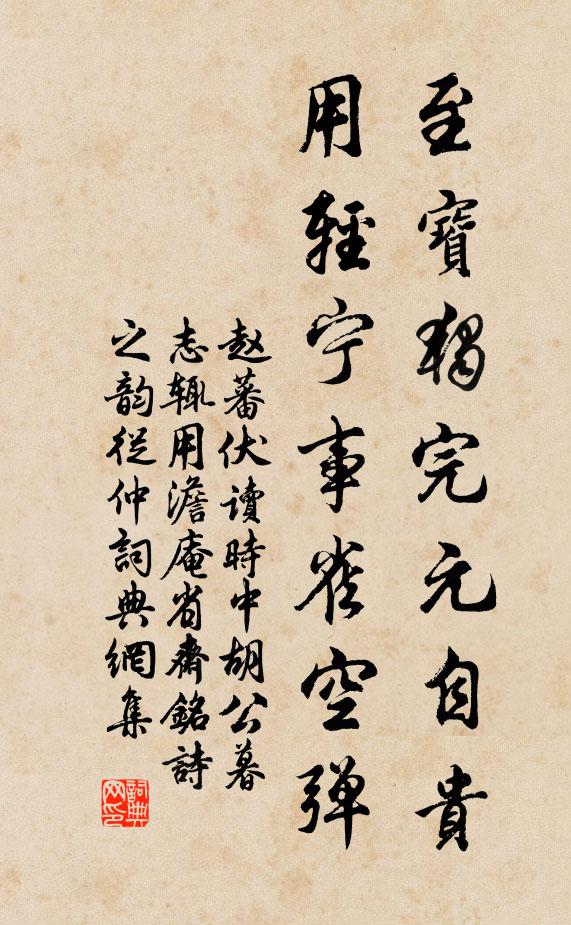 至寶獨完元自貴
用輕宁事雀空弹
赵蕃伏讀時中胡公暮
志辄用澹庵省齋銘詩
之韵從仲詞典網集
詞典网印